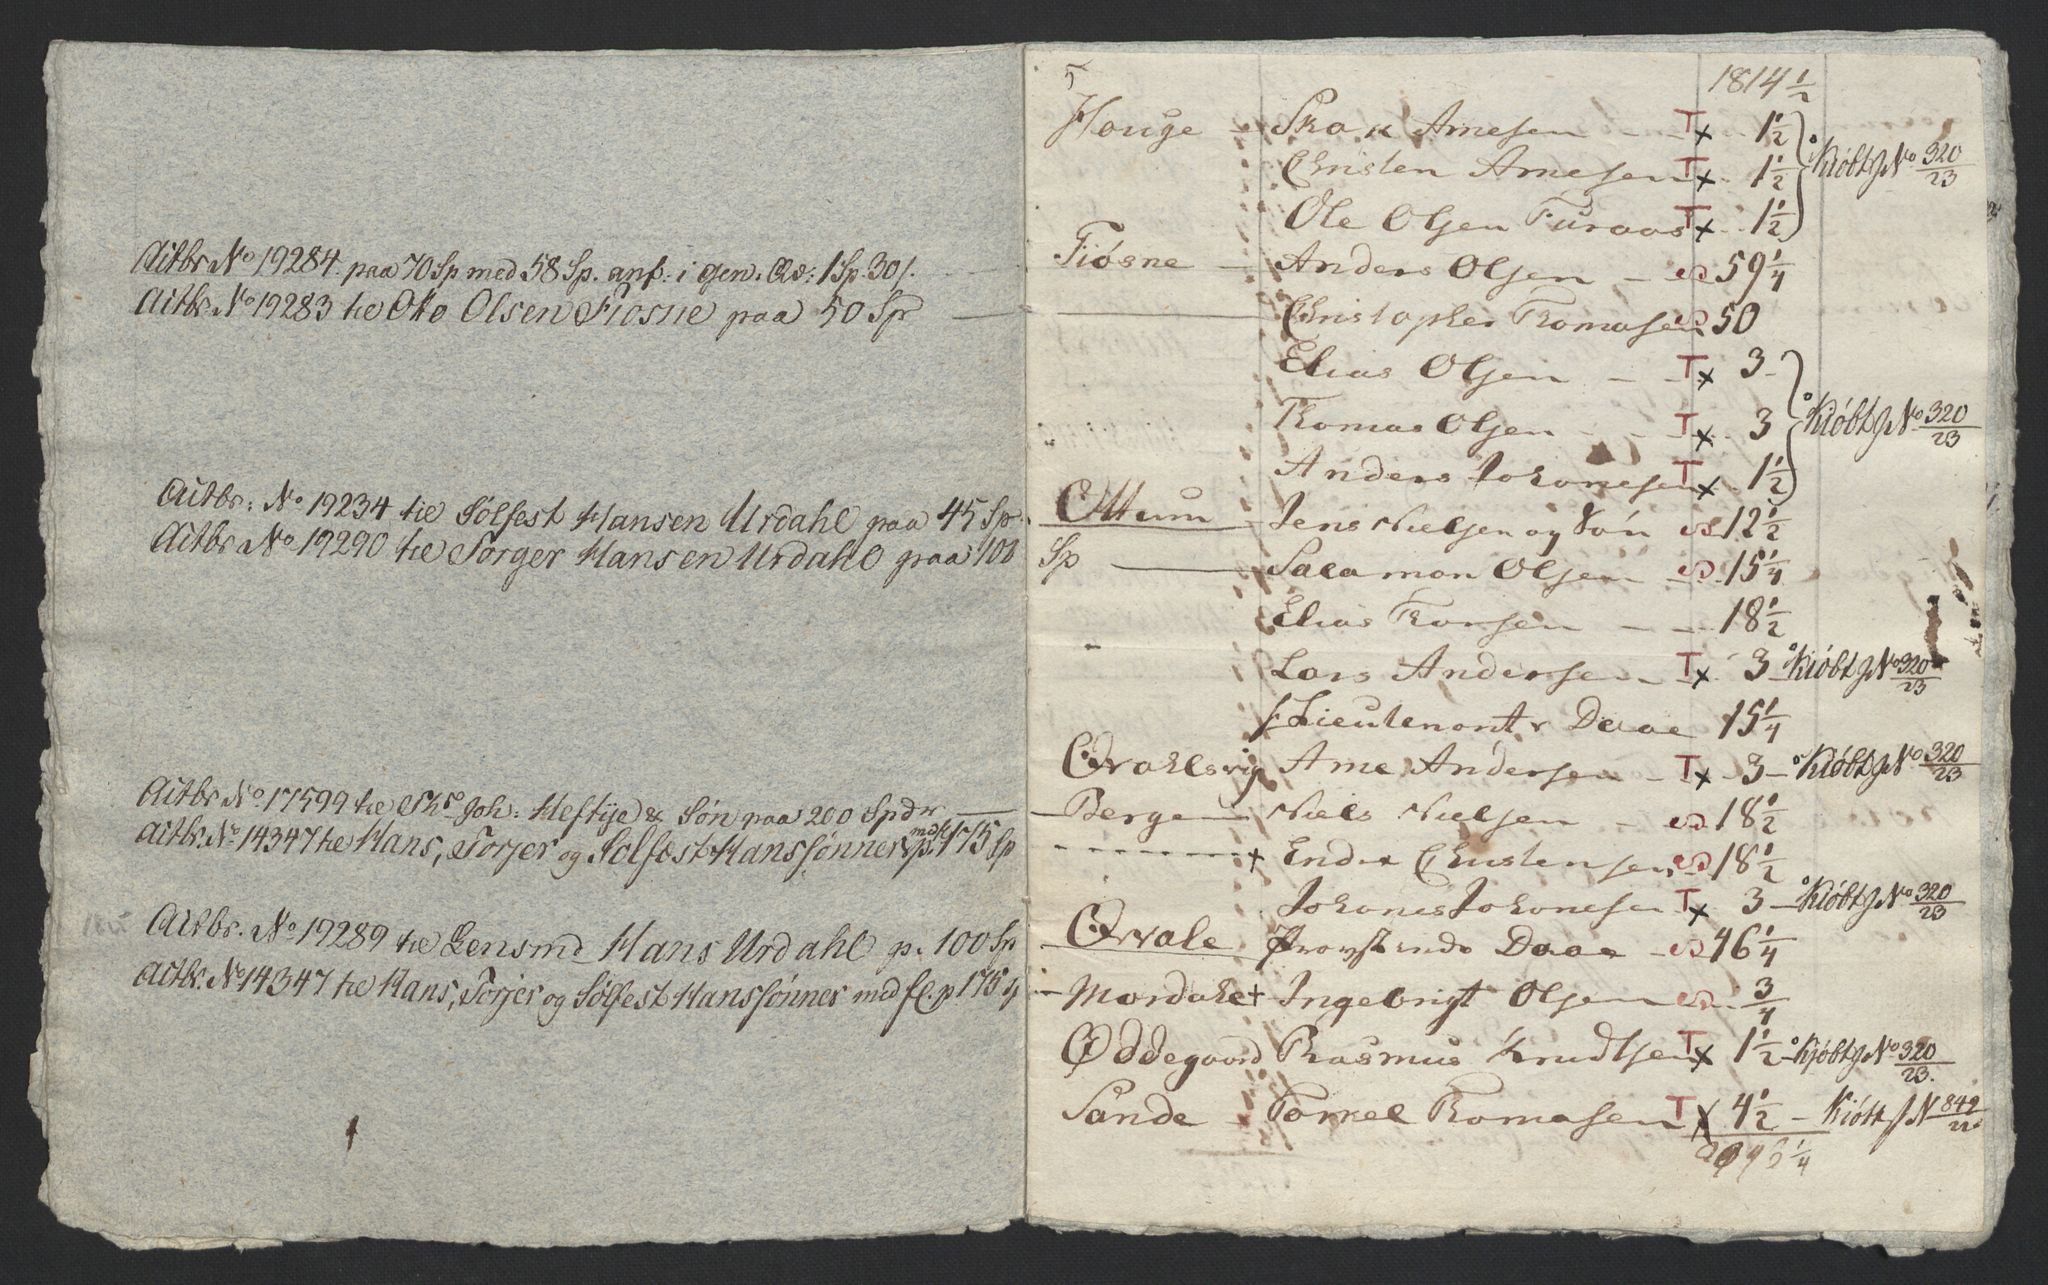 Actbr No 19284 paa 70 Sp med 58 Sp. anf: i gen. Qv: 1 Sp. 30 s.
Actbr. No 19283 til Ole Olsen Fiosne paa 50 Sp
Actbr: No 19234 til Sølfest Hansen Urdahl paa 45 Sp
Actbr No 19290 til Torger Hansen Urdahl paa 100
Actbr No 17599 til Joh: Heftye & Søn paa 200 Spdr
Actbr. No 14347 til Hans, Torjer og Solfest Hanssønner p. 175 Sp
Actbr. No 19289 til Lensmd Hans Urdahl p. 100 Sp
Actbr. No 14347 til Hans, Torjer og Sølfest Hanssønner med fl. p 175 Sp
5
1814 1/2
Houge Skak Arnesen T x 1 1/2
Christen Arnesen T x 1 1/2 Kiøbt J No 320/23
Ole Olsen Furaas T x 1 1/2
Fiøsne Anders Olsen 59 1/4
Christopher Thomasen 50
Elias Olsen T x 3
Thomas Olsen T x 3 Kiøbt J No 320/23
Anders Johannesen T x 1 1/2
Ottum Jens Nielsen og Søn 12 1/2
Sp Salamon Olsen 15 1/4
Elias Thorsen 18 1/2
Lars Andersen T x 3 Kiøbt J No 320/23
Lieutenant Daae 15 1/4
Qvalesvig Arne Andersen T x 3 Kiøbt J No 320/23
Berge Niels Nielsen 18 1/2
+ Endre Christensen 18 1/2
Johanes Johanesen T x 3 Kiøbt J No 320/23
Qvale Provstinde Daae 46 1/4
Mordahl + Ingebrigt Olsen 3/4
Øddegaard Rasmus Knudtsen T x 1 1/2 Kjøbt J No 320/23.
Sande Torkel Thomasen T x 4 1/2 Kiøbt J N 849